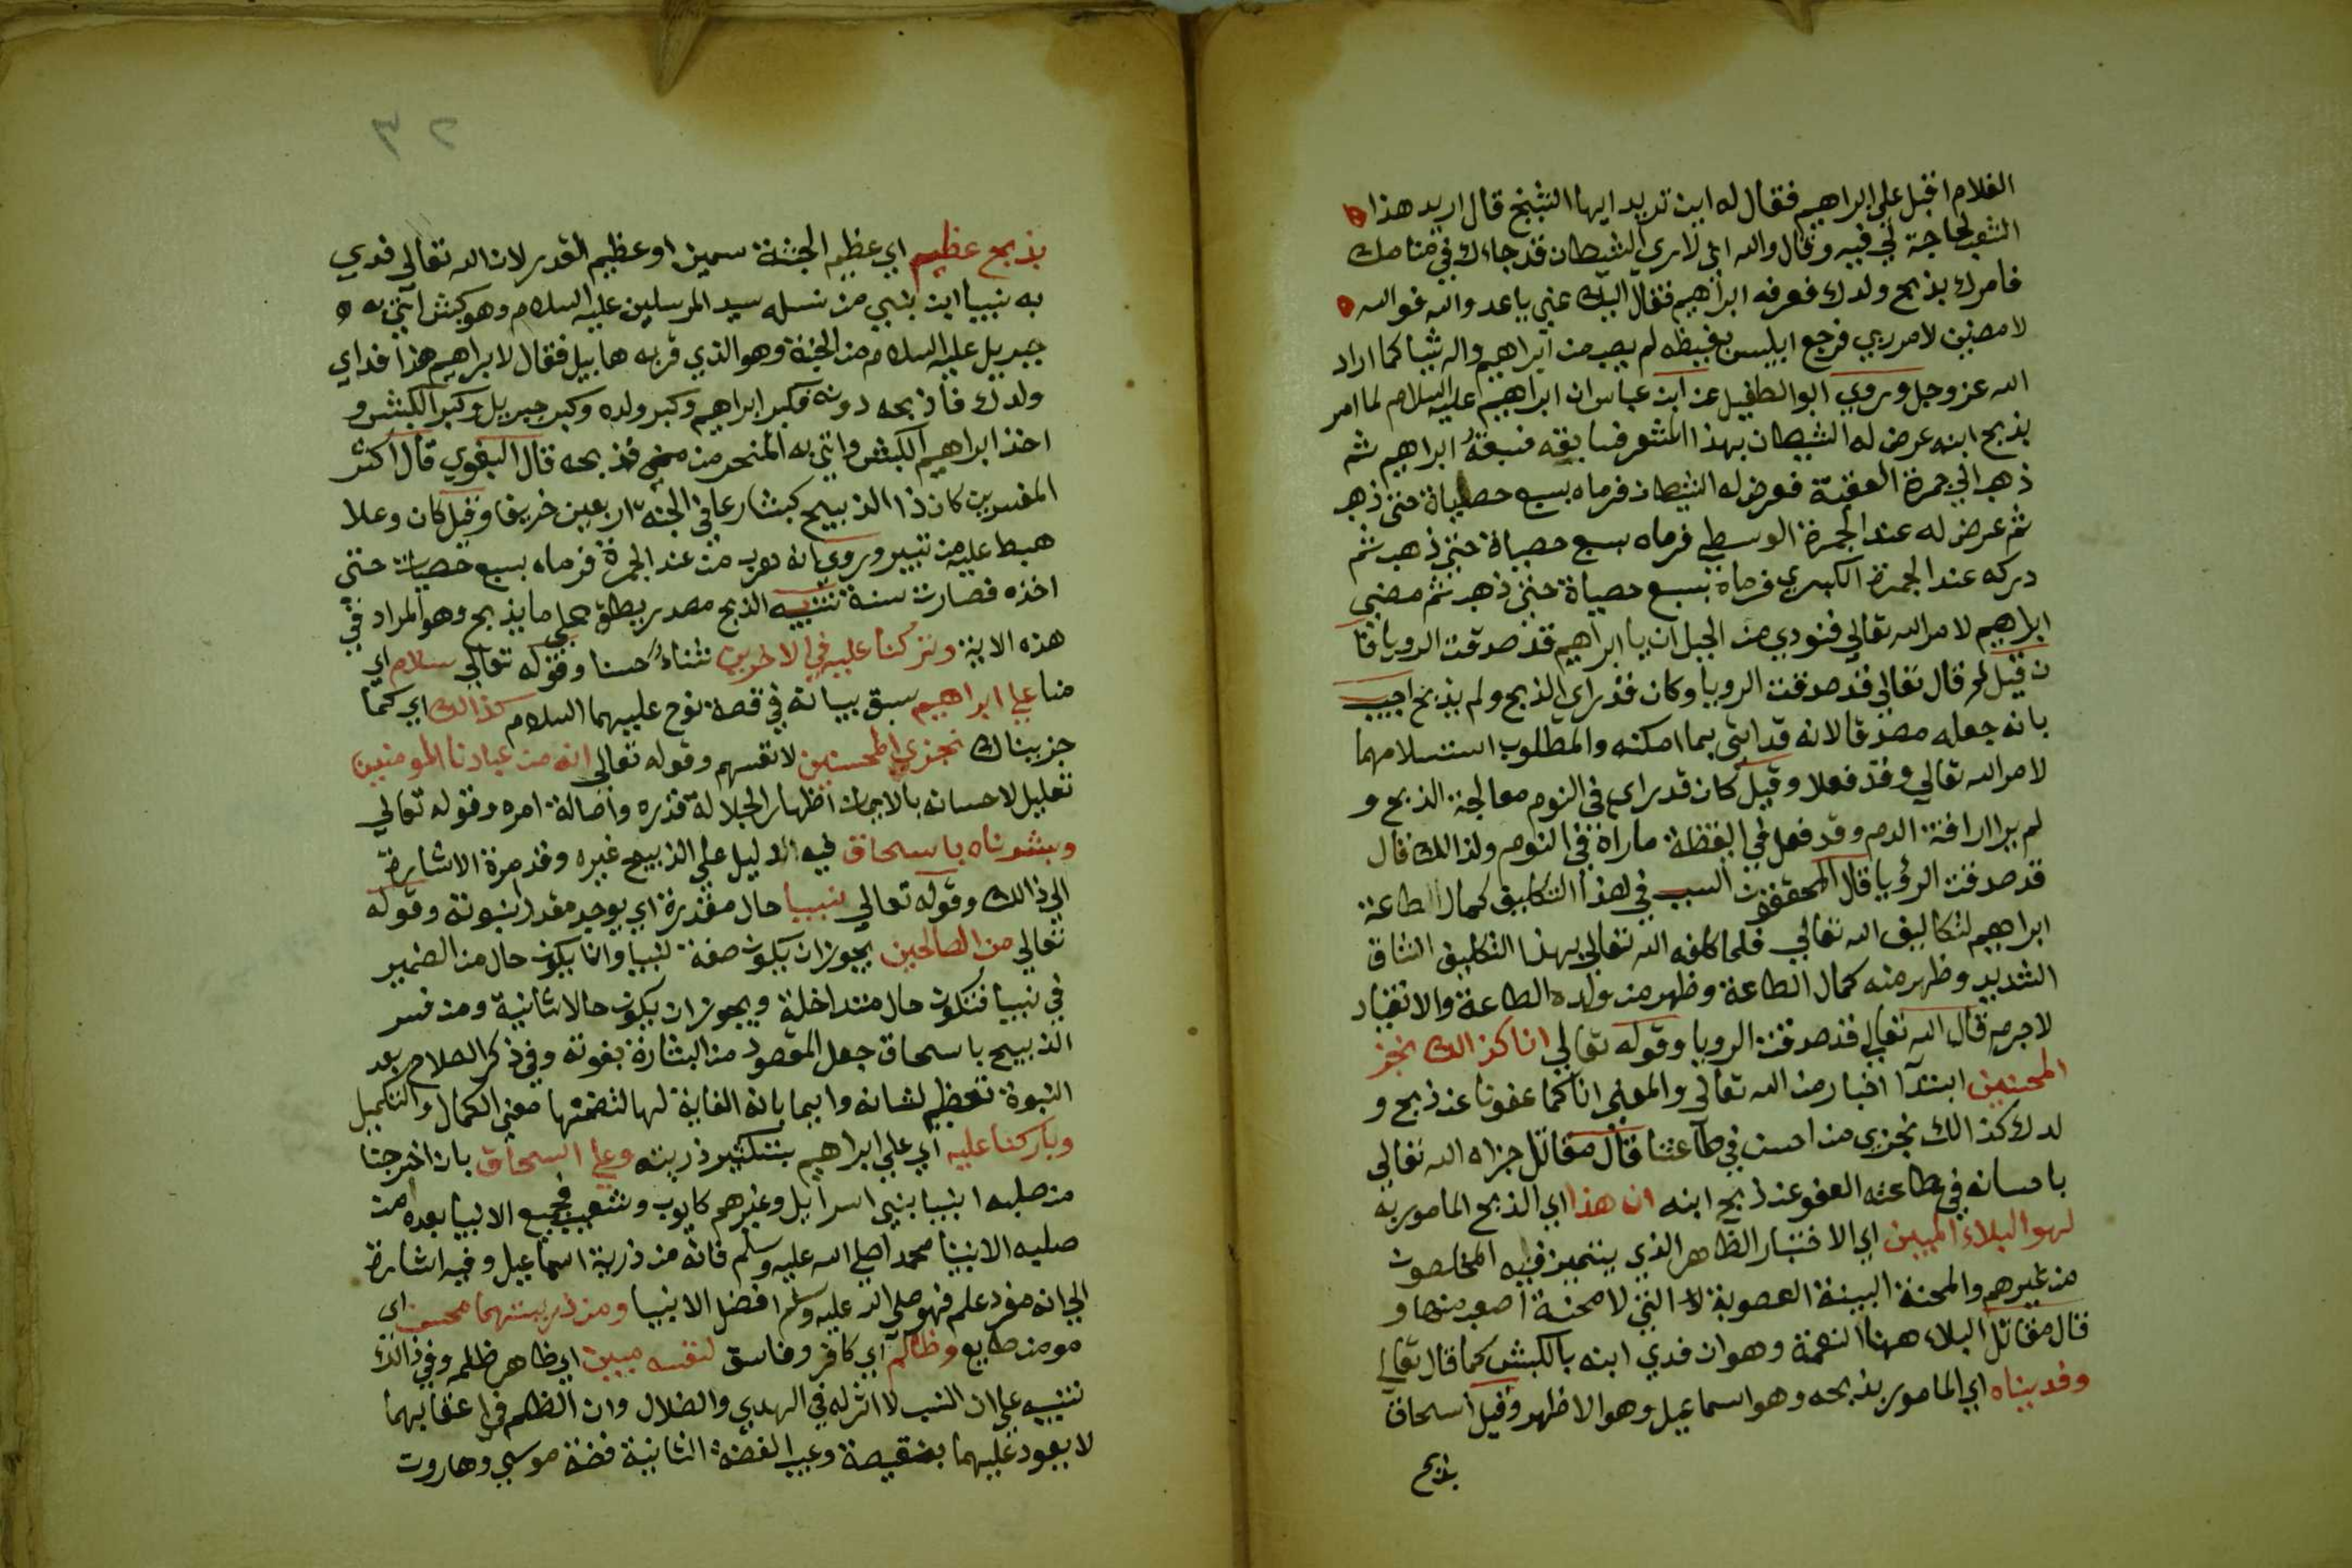 الغلام اقبل علي ابراهيم فقال له اين تريد ايها الشيخ قال اريد هذا
الشعب لحاجة لي فيه وقال والله اني لاري الشيطان قد جاءك في منامك
فامرك بذبح ولدك فعرفه ابراهيم فقال اليك عني يا عدو الله فوالله
لامضين لامر ربي فرجع ابليس بغيظه لم يصب من ابراهيم واله شيا كما اراد
الله عز وجل وروي ابو الطفيل عن ابن عباس ان ابراهيم عليه السلام لما امر
بذبح ابنه عرض له الشيطان بهذا المشعر فسابقه فسبقه ابراهيم ثم
ذهب الي جمرة العقبة فعرض له الشيطان فرماه بسبع حصياة حتى ذهب
ثم عرض له عند الجمرة الوسطي فرماه بسبع حصياة حتى ذهب ثم
دركه عند الجمرة الكبري فرماه بسبع حصياة حتى ذهب ثم مضي
ابراهيم لامر الله تعالي فنودي من الجبل ان يا ابراهيم قد صدقت الرويا فا
ن قيل لم قال تعالي قد صدقت الرويا وكان قد راي الذبح ولم يذبح اجيب
بانه جعله مصدقا لانه قد اتى بما امكنه والمطلوب استسلامهما
لامر الله تعالي وقد فعلا وقيل كان قد راي في النوم معالجة الذبح و
لم يرا اراقة الدم وقد فعل في اليقظة ماراة في النوم ولذالك قال
قد صدقت الرؤيا قال المحققون السبب في هذا التكليف كمال الطاعة
ابراهيم لتكاليف الله تعالي فلما كلفه الله تعالي بهذا التكليف الشاق
الشديد وظهر منه كمال الطاعة وظهر من ولده الطاعة والانقياد
لا جرم قال الله تعالي قد صدقت الرويا وقوله تعالي انا كذالك نجز
المحسنين ابتدآ اخبار من الله تعالي والمعني انا كما عفونا عن ذبح و
لدك كذالك نجزي من احسن في طاعتنا قال مقاتل جزاه الله تعالي
باحسانه في طاعته العفو عن ذبح ابنه ان هذا اي الذبح المامور به
لهو البلاء المبين اي الاختبار الظاهر الذي يتميز فيه المخلصون
من غيرهم والمحنة البينة الصعوبة التي لا محنة اصعب منها و
قال مقاتل البلاء ههنا النعمة وهو ان فدي ابنه بالكبش كما قال تعالي
وفديناه اي المامور بذبحه وهو اسماعيل وهو الاظهر وقيل اسحاق
بذبح
٣٢
بذبح عظيم اي عظيم الجثة سمين او عظيم القدر لان الله تعالي فدي
به نبيا ابن نبي من نسله سيد المرسلين عليه السلام وهو كبش اتى به
جبريل عليه السلام من الجنة وهو الذي قربه هابيل فقال لابراهيم هذا فداي
ولدك فاذبحه دونه فكبر ابراهيم وكبر ولده وكبر جبريل وكبر الكبش و
اخذ ابراهيم الكبش واتي به المنحر من منى فذبحه قال البغوي قال اكثر
المفسرين كان ذا الذبيح كبشا رعا في الجنة اربعين خريفا وقيل كان وعلا
هبط عليه من ثبير وروي انه هرب من عند الجمرة فرماه بسبع حصيات حتى
اخذه فصارت سنة تنبيه الذبح مصدر يطلق علي ما يذبح وهو المراد في
هذه الاية وتركنا عليه في الاخرين ثناء حسنا وقوله تعالي سلام اي
منا علي ابراهيم سبق بيانه في قصة نوح عليهما السلام كذالك اي كما
جزيناك نجزي المحسنين لانفسهم وقوله تعالى انه من عبادنا المومنين
تعليل لاحسانه بالايمان اظهار الجلالة قدره واصالة امره وقوله تعالي
وبشرناه باسحاق فيه الدليل علي الذبيح غيره وقد مرة الاشارة
الي ذالك وقوله تعالي نبيا حال مقدرة اي يوجد مقدرا نبوته وقوله
تعالي من الصالحين يجوز ان يكون صفة لنبيا وان يكون حال من الضمير
في نبيا فتكون حال متداخلة ويجوز ان يكون حالا ثانية ومن فسر
الذبيح باسحاق جعل المقصود من البشارة نبوته وفي ذكر الصلاح بعد
النبوة تعظيم لشانه وايما بانه الغاية لها لتضمنها معني الكمال والتكميل
وباركنا عليه اي علي ابراهيم بتكثير ذريته وعلي اسحاق بان اخرجنا
من صلبه انبيا بني اسرايل وغيرهم كايوب وشعيب فجميع الانبيا بعده من
صلبه الا نبينا محمدا صلي الله عليه وسلم فانه من ذرية اسماعيل وفيه اشارة
الي انه مفرد علم فهو صلي الله عليه وسلم افضل الانبيا ومن ذريتهما محسن اي
مومن طايع وظالم اي كافر وفاسق لنفسه مبين اي ظاهر ظلمه وفي ذالك
تنبيه علي ان النسب لا اثر له في الهدي والضلال وان الظلم في اعقابهما
لا يعود عليهما بنقيصة وعيب القصة الثانية قصة موسي وهارون